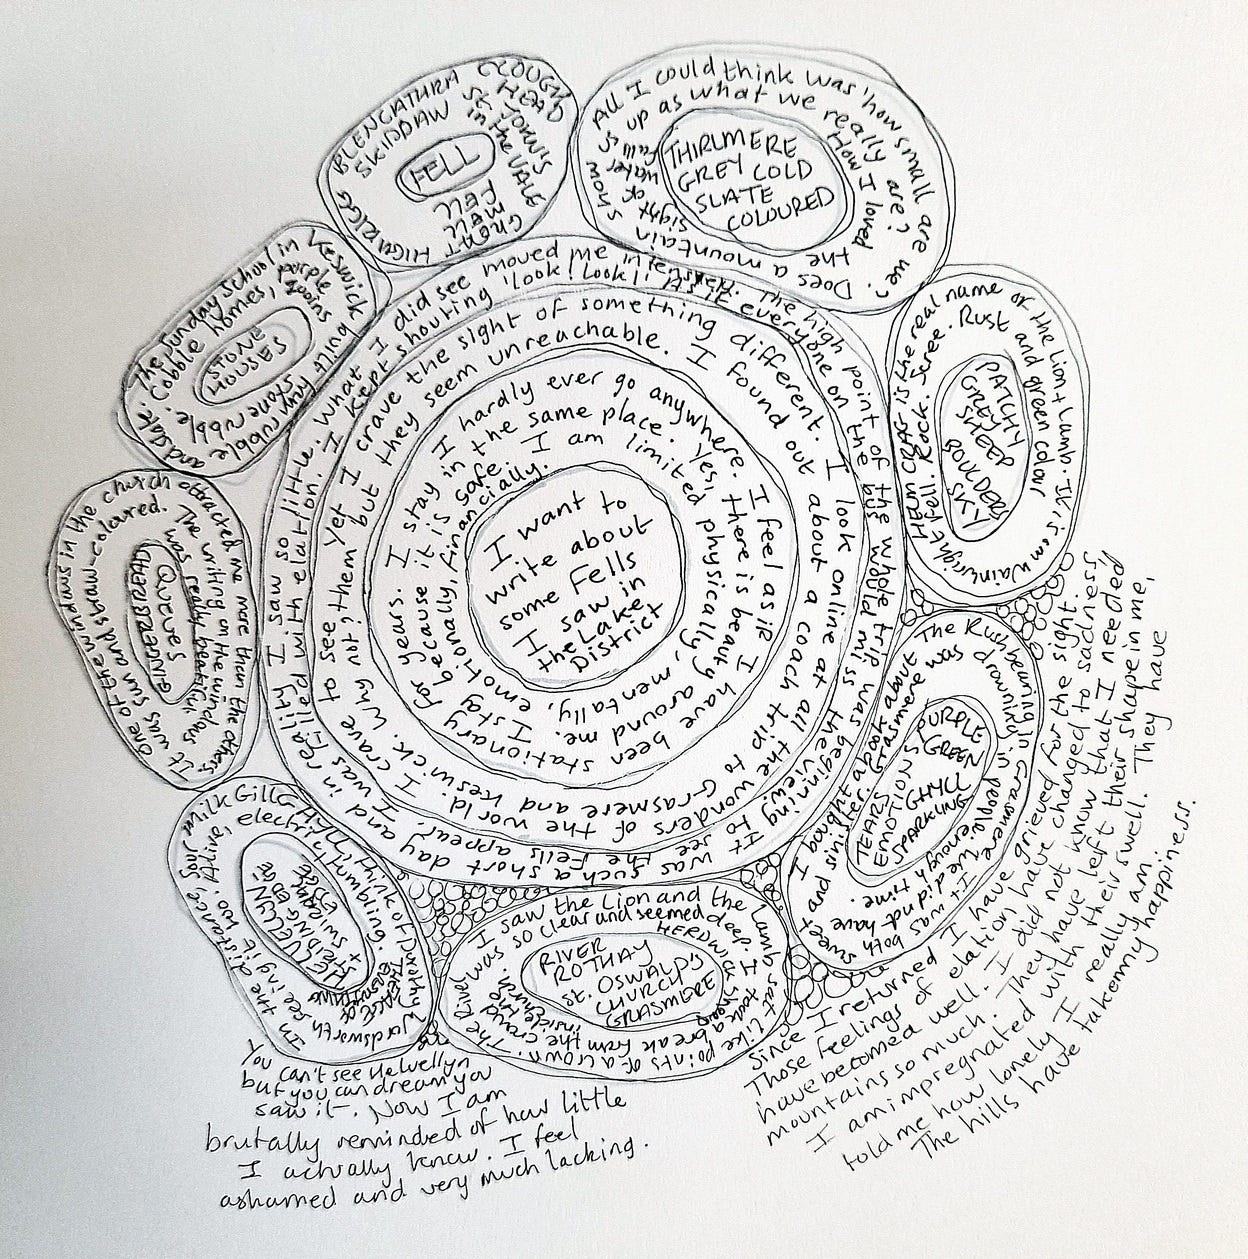 I want to
write about
some Fells
I saw in
the Lake
District
I hardly ever go anywhere. I feel as if I have been stationary for years. I stay
in the same place. Yes, there is beauty around me. I stay because it is safe.
I am limited physically, mentally, emotionally, financially.
Yet I crave the sight of something different. I look online at all the wonders of the world. I crave to see them
but they seem unreachable. I found out about a coach trip to Grasmere and Keswick. Why not?
What I did see moved me intensely. The high point of the whole trip was the beginning view. It was such a short day and in reality I saw so little.
I kept shouting 'Look! Look!' As if everyone on the bus would miss seeing the fells appear. I was filled with elation.
FELL
BLENCATHRA CLOUGH HEAD
SKIDDAW ST. JOHN'S in the VALE
GREAT MELL FELL
HIGH RIGG
THIRLMERE
GREY COLD
SLATE
COLOURED
All I could think was 'how small are we?
Does a mountain show up as what we really are?
How I loved the sight of water falls
PATCHY
GREY
SHEEP
BOULDERS
SKY
HELM CRAG is the real name of the Lion & Lamb. It is from Wainwright
Fell. Rock. Scree. Rust and green colour
PURPLE
GREEN
GHYLL
SPARKLING
TEARS
EMOTIONS
The Rushbearing in Grasmere. It was both sweet and sinister.
I bought a book about people drowning in Grasmere. We did not have enough time.
RIVER
ROTHAY
ST. OSWALD'S
CHURCH
GRASMERE
I saw the Lion and the Lamb sat like points of a crown. The River
was so clear and seemed deep.
HERDWICK
I took a break from the crowd inside the church.
HELVELLYN
+
STRIDING EDGE
SWIRRAL
EDGE
Milk Gill
I think of Dorothy Wordsworth
In the distance, seeing it
Alive, electrifying, humbling.
STONE
HOUSES
The Sunday School in Keswick
and slate. Cobble homes, purple
CHERISTENDING
One of the windows in the church attracted me more than the others.
It was sun and straw-coloured. The writing on the windows
was really beautiful
You can't see Helvellyn
but you can dream you
saw it. Now I am
brutally reminded of how little
I actually know. I feel
ashamed and very much lacking.
Since I returned I have grieved for the sight.
Those feelings of elation, have changed to sadness
have become a well. I did not know that I needed
mountains so much. They have left their shape in me,
I am impregnated with their swell. They have
told me how lonely I really am.
The hills have taken my happiness.